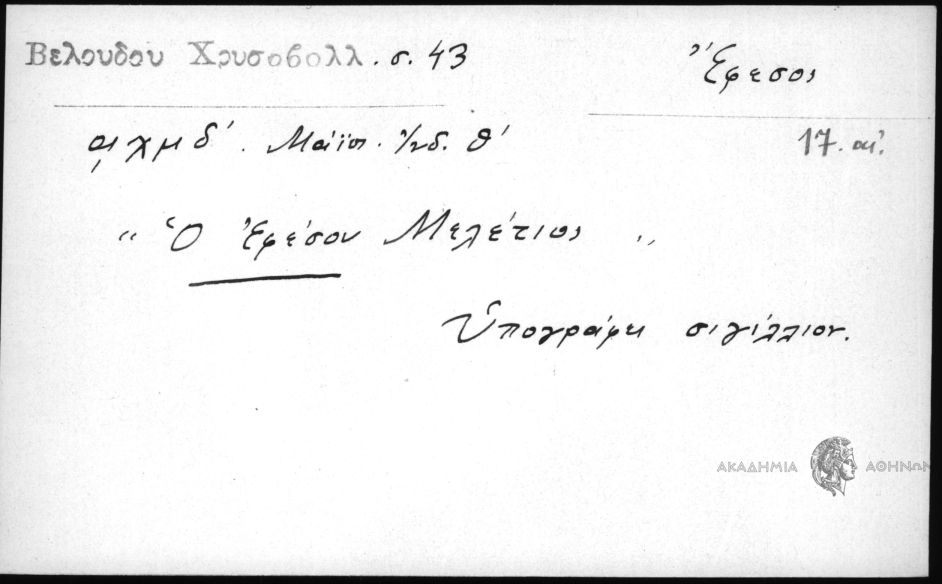 Βελουδου Χρυσοβολλ. σ. 43
Ἔφεσος
αχμδ΄. Μάϊος. Ἰνδ. θ΄
17. αἰ.
“ Ὁ Ἐφέσου Μελέτιος „
Ὑπογράφει σιγίλλιον.
ΑΚΑΔΗΜΙΑ ΑΘΗΝΩΝ